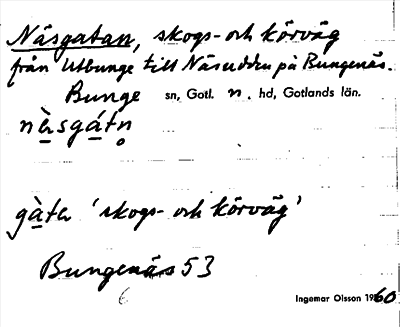 Näsgatan, skogs- och körväg
från Utbunge till Näsudden på Bungenäs.
Bunge sn, Gotl. n. hd, Gotlands län.
nèsgátn̥
gàtɐ 'skogs- och körväg'
Bungenäs 53
6
Ingemar Olsson 1960